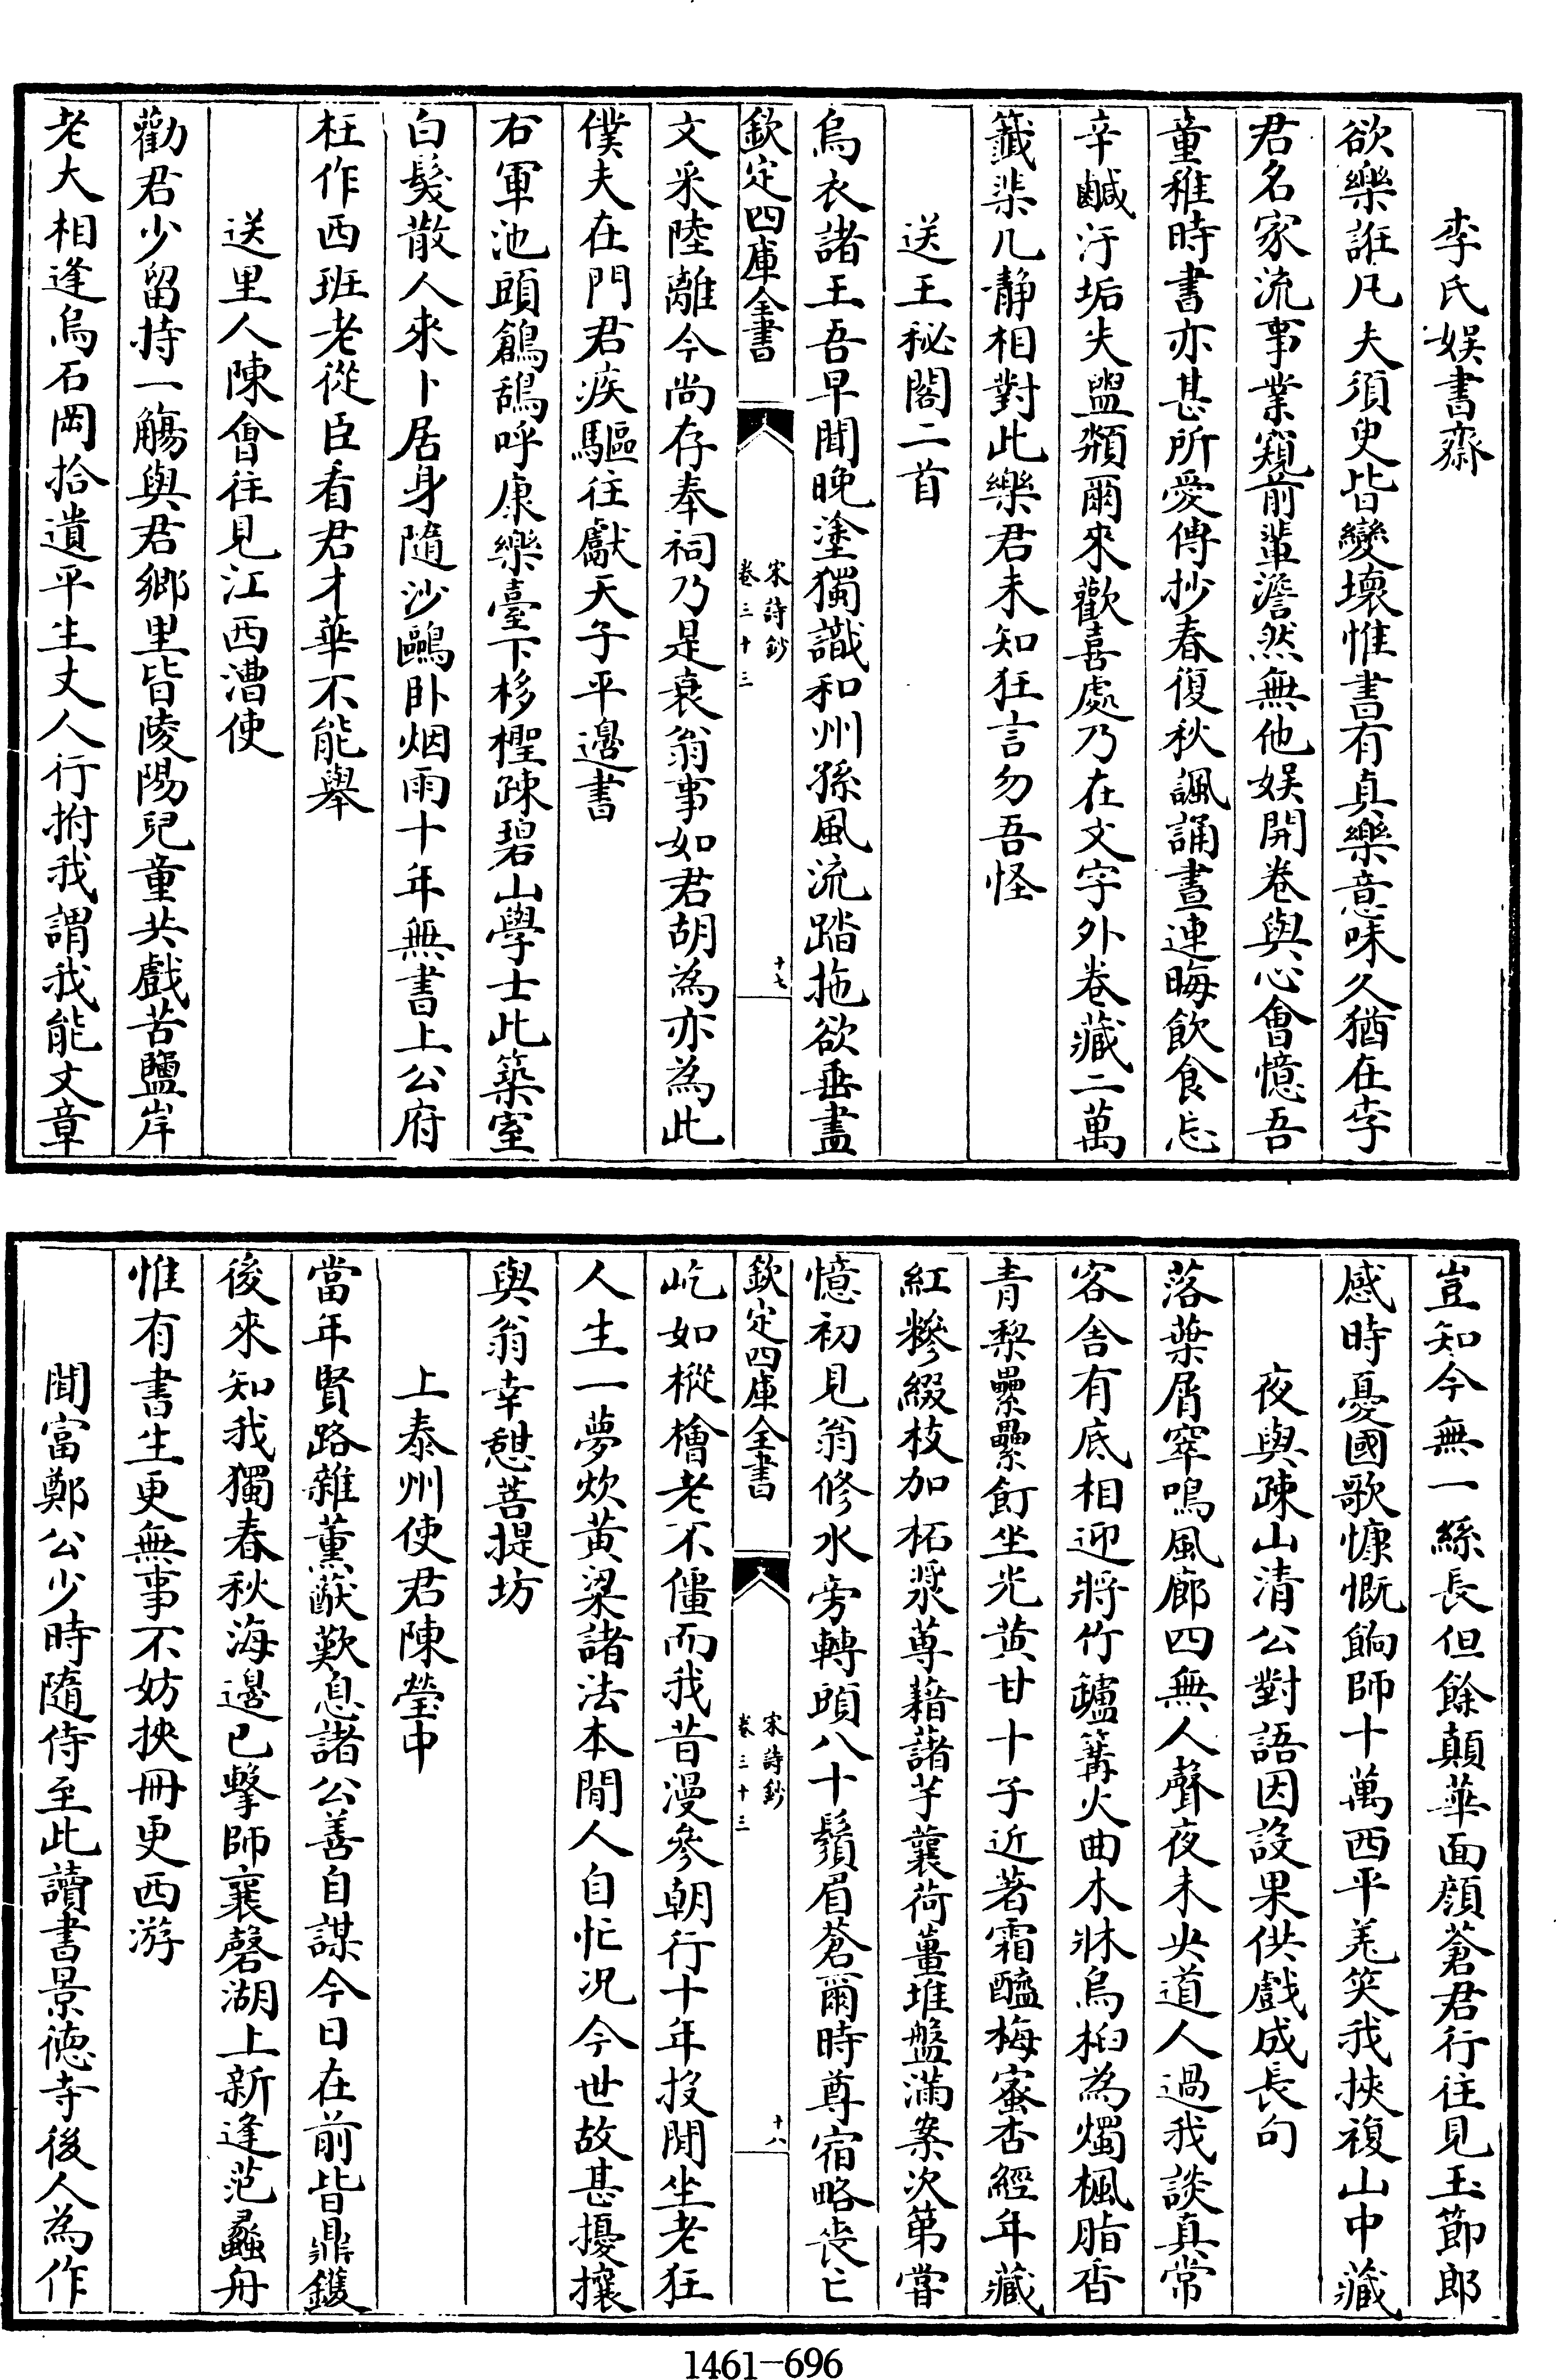 李氏娱書齋
欲樂誑凡夫須臾皆變壞惟書有真樂意味久猶在李
君名家流事業窺前輩澹然無他娱開卷與心會憶吾
童稚時書亦甚所愛傳抄春復秋諷誦晝連晦飲食忘
辛鹹汙垢失盥頮爾來歡喜處乃在文字外卷藏二萬
籤棐几静相對此樂君未知狂言勿吾怪
送王秘閣二首
烏衣諸王吾早聞晚塗獨識和州孫風流踏拖欲垂盡
欽定四庫全書
宋詩鈔
卷三十三
十七
文采陸離今尚存奉祠乃是衰翁事如君胡為亦為此
僕夫在門君疾驅往獻天子平邊書
右軍池頭鶬鴰呼康樂臺下杉檉疎碧山學士此築室
白髮散人來卜居身隨沙鷗卧烟雨十年無書上公府
枉作西班老從臣看君才華不能舉
送里人陳會往見江西漕使
勸君少留持一觴與君鄉里皆陵陽兒童共戲苦鹽岸
老大相逢烏石岡拾遺平生丈人行拊我謂我能文章
豈知今無一絲長但餘顛華面顔蒼君行往見玉節郎
感時憂國歌慷慨餉師十萬西平羗笑我挾複山中藏
夜與疎山清公對語因設果供戲成長句
落葉屑窣鳴風廊四無人聲夜未央道人過我談真常
客舎有底相迎將竹爐篝火曲木牀烏桕為燭楓脂香
青棃纍纍飣坐光黄甘十子近著霜醯梅蜜杏經年藏
紅糝綴枝加柘漿蓴藉藷芋蘘荷薑堆盤滿案次第嘗
憶初見翁修水旁轉頭八十鬚眉蒼爾時尊宿略喪亡
欽定四庫全書
宋詩鈔
卷三十三
十八
屹如樅檜老不僵而我昔漫參朝行十年投閒坐老狂
人生一夢炊黄粱諸法本閒人自忙况今世故甚擾攘
與翁幸憇菩提坊
上泰州使君陳瑩中
當年賢路雜薰蕕歎息諸公善自謀今日在前皆鼎鑊
後來知我獨春秋海邊已擊師襄磬湖上新逢范蠡舟
惟有書生更無事不妨挾冊更西游
聞富鄭公少時隨侍至此讀書景徳寺後人為作
1461-696